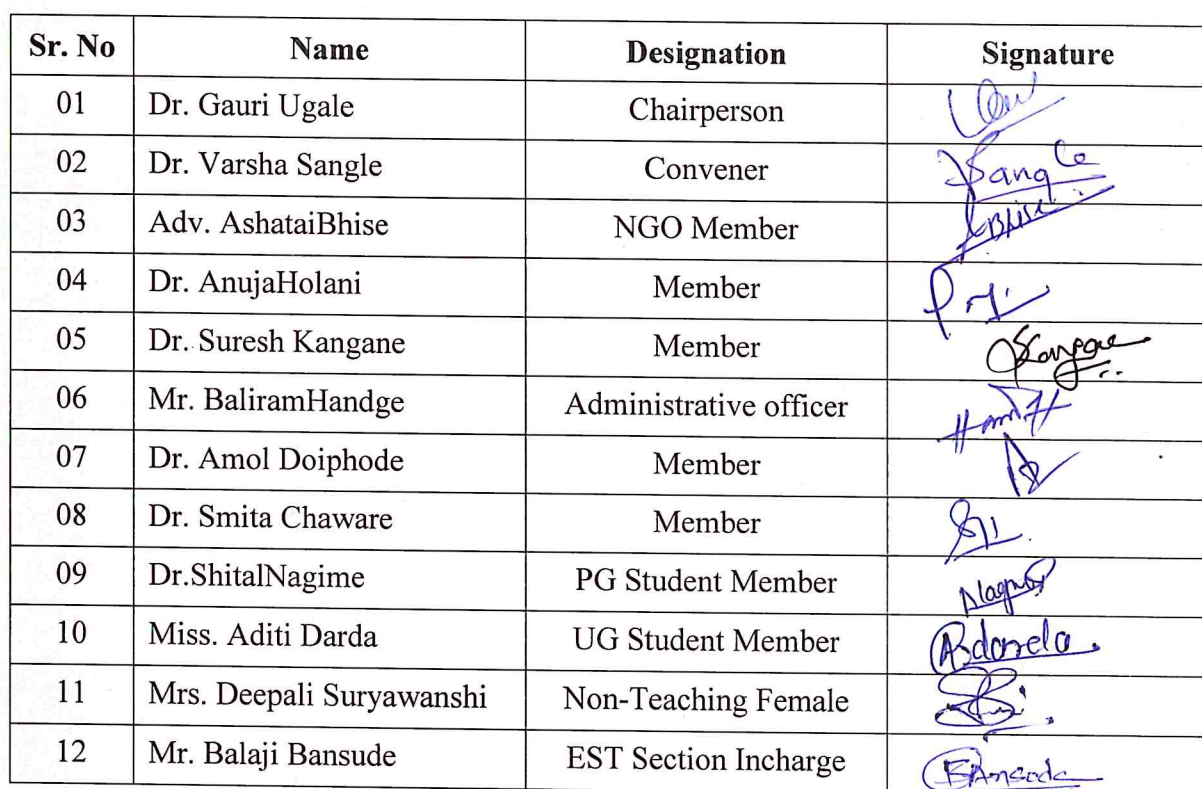 Sr. No Name Designation Signature
01 Dr. Gauri Ugale Chairperson
02 Dr. Varsha Sangle Convener Sangle
03 Adv. AshataiBhise NGO Member Bhise
04 Dr. AnujaHolani Member
05 Dr. Suresh Kangane Member SKangane
06 Mr. BaliramHandge Administrative officer
07 Dr. Amol Doiphode Member
08 Dr. Smita Chaware Member
09 Dr.ShitalNagime PG Student Member
10 Miss. Aditi Darda UG Student Member
11 Mrs. Deepali Suryawanshi Non-Teaching Female
12 Mr. Balaji Bansude EST Section Incharge